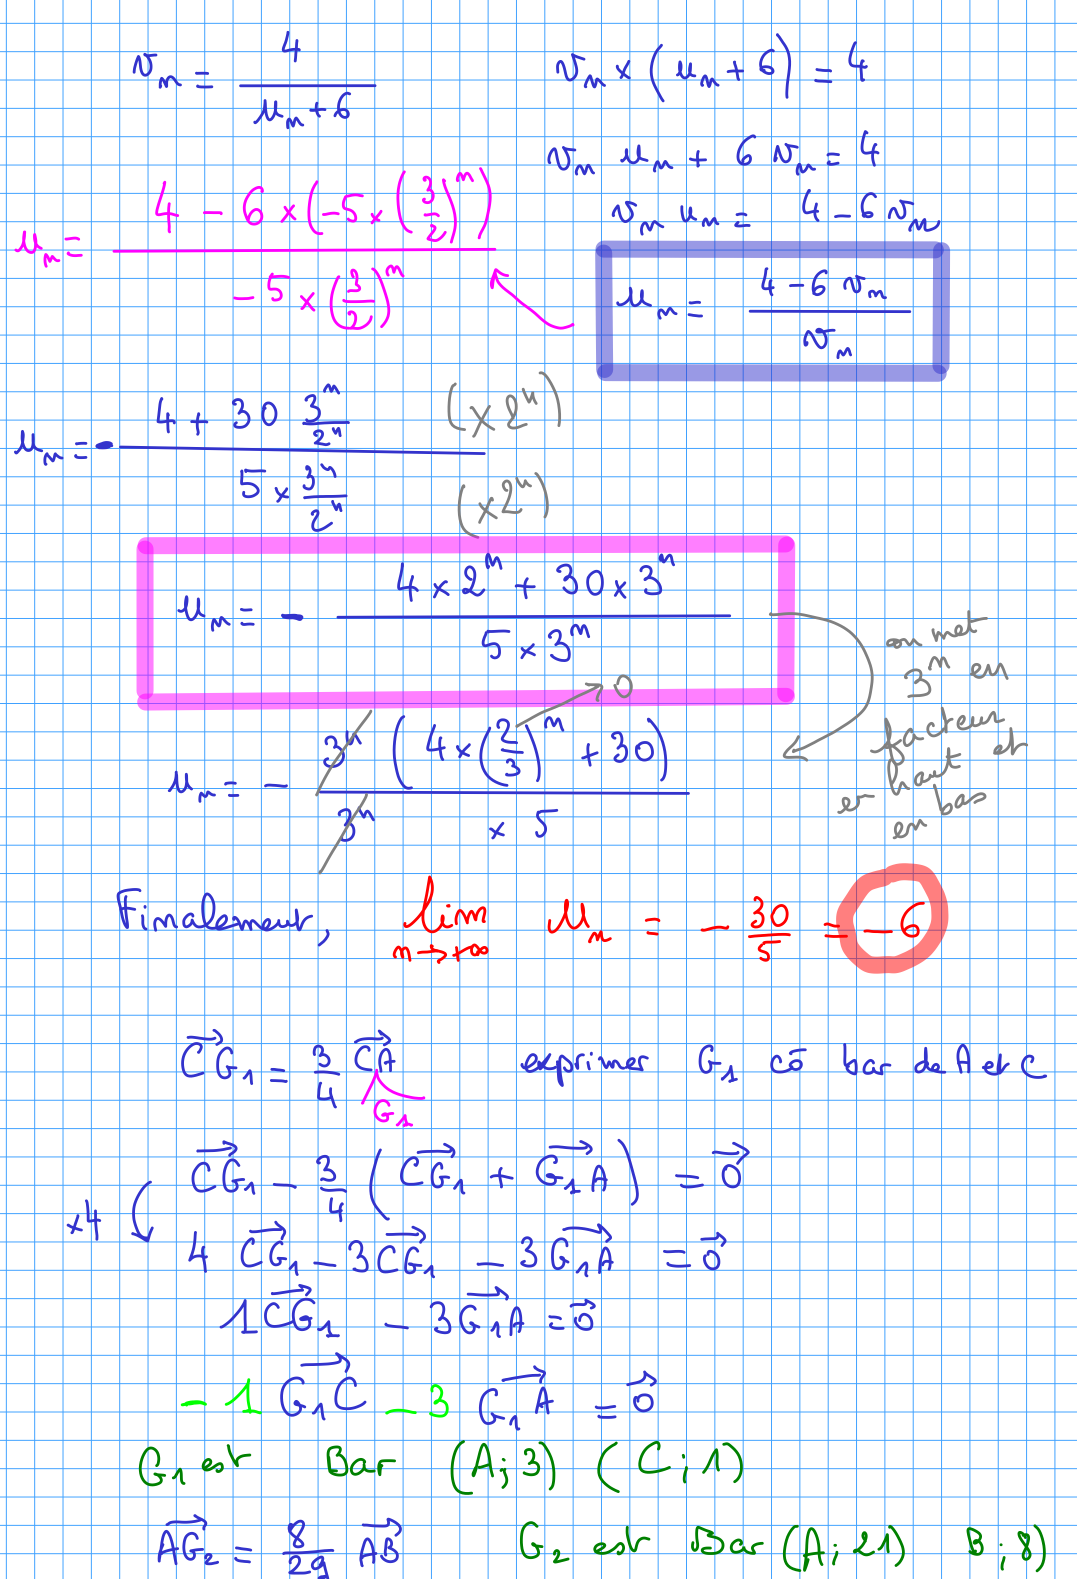 vₙ = 4 / (uₙ + 6)
vₙ × (uₙ + 6) = 4
vₙ uₙ + 6 vₙ = 4
vₙ uₙ = 4 - 6 vₙ
uₙ = (4 - 6 vₙ) / vₙ
uₙ = (4 - 6 × (-5 × (3/2)ⁿ)) / (-5 × (3/2)ⁿ)
uₙ = - (4 + 30 3ⁿ/2ⁿ) / (5 × 3ⁿ/2ⁿ) (×2ⁿ) (×2ⁿ)
uₙ = - (4 × 2ⁿ + 30 × 3ⁿ) / (5 × 3ⁿ)
on met
3ⁿ en
facteur
en haut et
en bas
uₙ = - 3ⁿ (4 × (2/3)ⁿ + 30) / (3ⁿ × 5) → 0
Finalement, lim n→+∞ uₙ = - 30/5 = -6
CG₁⃗ = 3/4 CA⃗ exprimer G₁ cō bar de A et C
G₁
CG₁⃗ - 3/4 (CG₁⃗ + G₁A⃗) = 0⃗
×4
4 CG₁⃗ - 3 CG₁⃗ - 3 G₁A⃗ = 0⃗
1 CG₁⃗ - 3 G₁A⃗ = 0⃗
-1 G₁C⃗ - 3 G₁A⃗ = 0⃗
G₁ est Bar (A; 3) (C; 1)
AG₂⃗ = 8/29 AB⃗ G₂ est Bar (A; 21) B; 8)